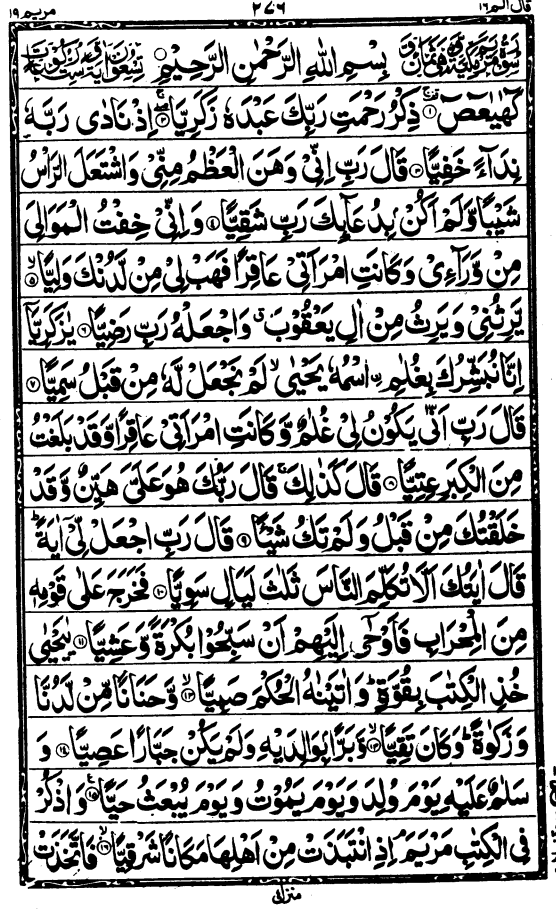 قال الم ١٦ ٢٧٦ مريم ١٩
سورة مريم مكية وهي ثمان و بِسْمِ اللهِ الرَّحْمٰنِ الرَّحِيْمِ تسعون اية وست ركوعات
كٓهٰيٰعٓصٓ ۚ﴿۱﴾ ذِكْرُ رَحْمَتِ رَبِّكَ عَبْدَهٗ زَكَرِيَّا ۖ﴿۲﴾ اِذْ نَادٰى رَبَّهٗ
نِدَآءً خَفِيًّا ﴿۳﴾ قَالَ رَبِّ اِنِّيْ وَهَنَ الْعَظْمُ مِنِّيْ وَاشْتَعَلَ الرَّاْسُ
شَيْبًا وَّلَمْ اَكُنْۢ بِدُعَآئِكَ رَبِّ شَقِيًّا ﴿۴﴾ وَاِنِّيْ خِفْتُ الْمَوَالِيَ
مِنْ وَّرَآءِيْ وَكَانَتِ امْرَاَتِيْ عَاقِرًا فَهَبْ لِيْ مِنْ لَّدُنْكَ وَلِيًّا ۙ﴿۵﴾
يَّرِثُنِيْ وَيَرِثُ مِنْ اٰلِ يَعْقُوْبَ ۖ وَاجْعَلْهُ رَبِّ رَضِيًّا ﴿۶﴾ يٰزَكَرِيَّآ
اِنَّا نُبَشِّرُكَ بِغُلٰمِ ۨاسْمُهٗ يَحْيٰى ۙ لَمْ نَجْعَلْ لَّهٗ مِنْ قَبْلُ سَمِيًّا ﴿۷﴾
قَالَ رَبِّ اَنّٰى يَكُوْنُ لِيْ غُلٰمٌ وَّكَانَتِ امْرَاَتِيْ عَاقِرًا وَّقَدْ بَلَغْتُ
مِنَ الْكِبَرِ عِتِيًّا ﴿۸﴾ قَالَ كَذٰلِكَ ۚ قَالَ رَبُّكَ هُوَ عَلَيَّ هَيِّنٌ وَّقَدْ
خَلَقْتُكَ مِنْ قَبْلُ وَلَمْ تَكُ شَيْـًٔا ﴿۹﴾ قَالَ رَبِّ اجْعَلْ لِّيْٓ اٰيَةً ؕ
قَالَ اٰيَتُكَ اَلَّا تُكَلِّمَ النَّاسَ ثَلٰثَ لَيَالٍ سَوِيًّا ﴿۱۰﴾ فَخَرَجَ عَلٰى قَوْمِهٖ
مِنَ الْمِحْرَابِ فَاَوْحٰٓى اِلَيْهِمْ اَنْ سَبِّحُوْا بُكْرَةً وَّعَشِيًّا ﴿۱۱﴾ يٰيَحْيٰى
خُذِ الْكِتٰبَ بِقُوَّةٍ ؕ وَاٰتَيْنٰهُ الْحُكْمَ صَبِيًّا ۙ﴿۱۲﴾ وَّحَنَانًا مِّنْ لَّدُنَّا
وَزَكٰوةً ؕ وَكَانَ تَقِيًّا ۙ﴿۱۳﴾ وَّبَرًّۢا بِوَالِدَيْهِ وَلَمْ يَكُنْ جَبَّارًا عَصِيًّا ﴿۱۴﴾ وَ
سَلٰمٌ عَلَيْهِ يَوْمَ وُلِدَ وَيَوْمَ يَمُوْتُ وَيَوْمَ يُبْعَثُ حَيًّا ﴿۱۵﴾ وَاذْكُرْ
فِي الْكِتٰبِ مَرْيَمَ ۘ اِذِ انْتَبَذَتْ مِنْ اَهْلِهَا مَكَانًا شَرْقِيًّا ۙ﴿۱۶﴾ فَاتَّخَذَتْ